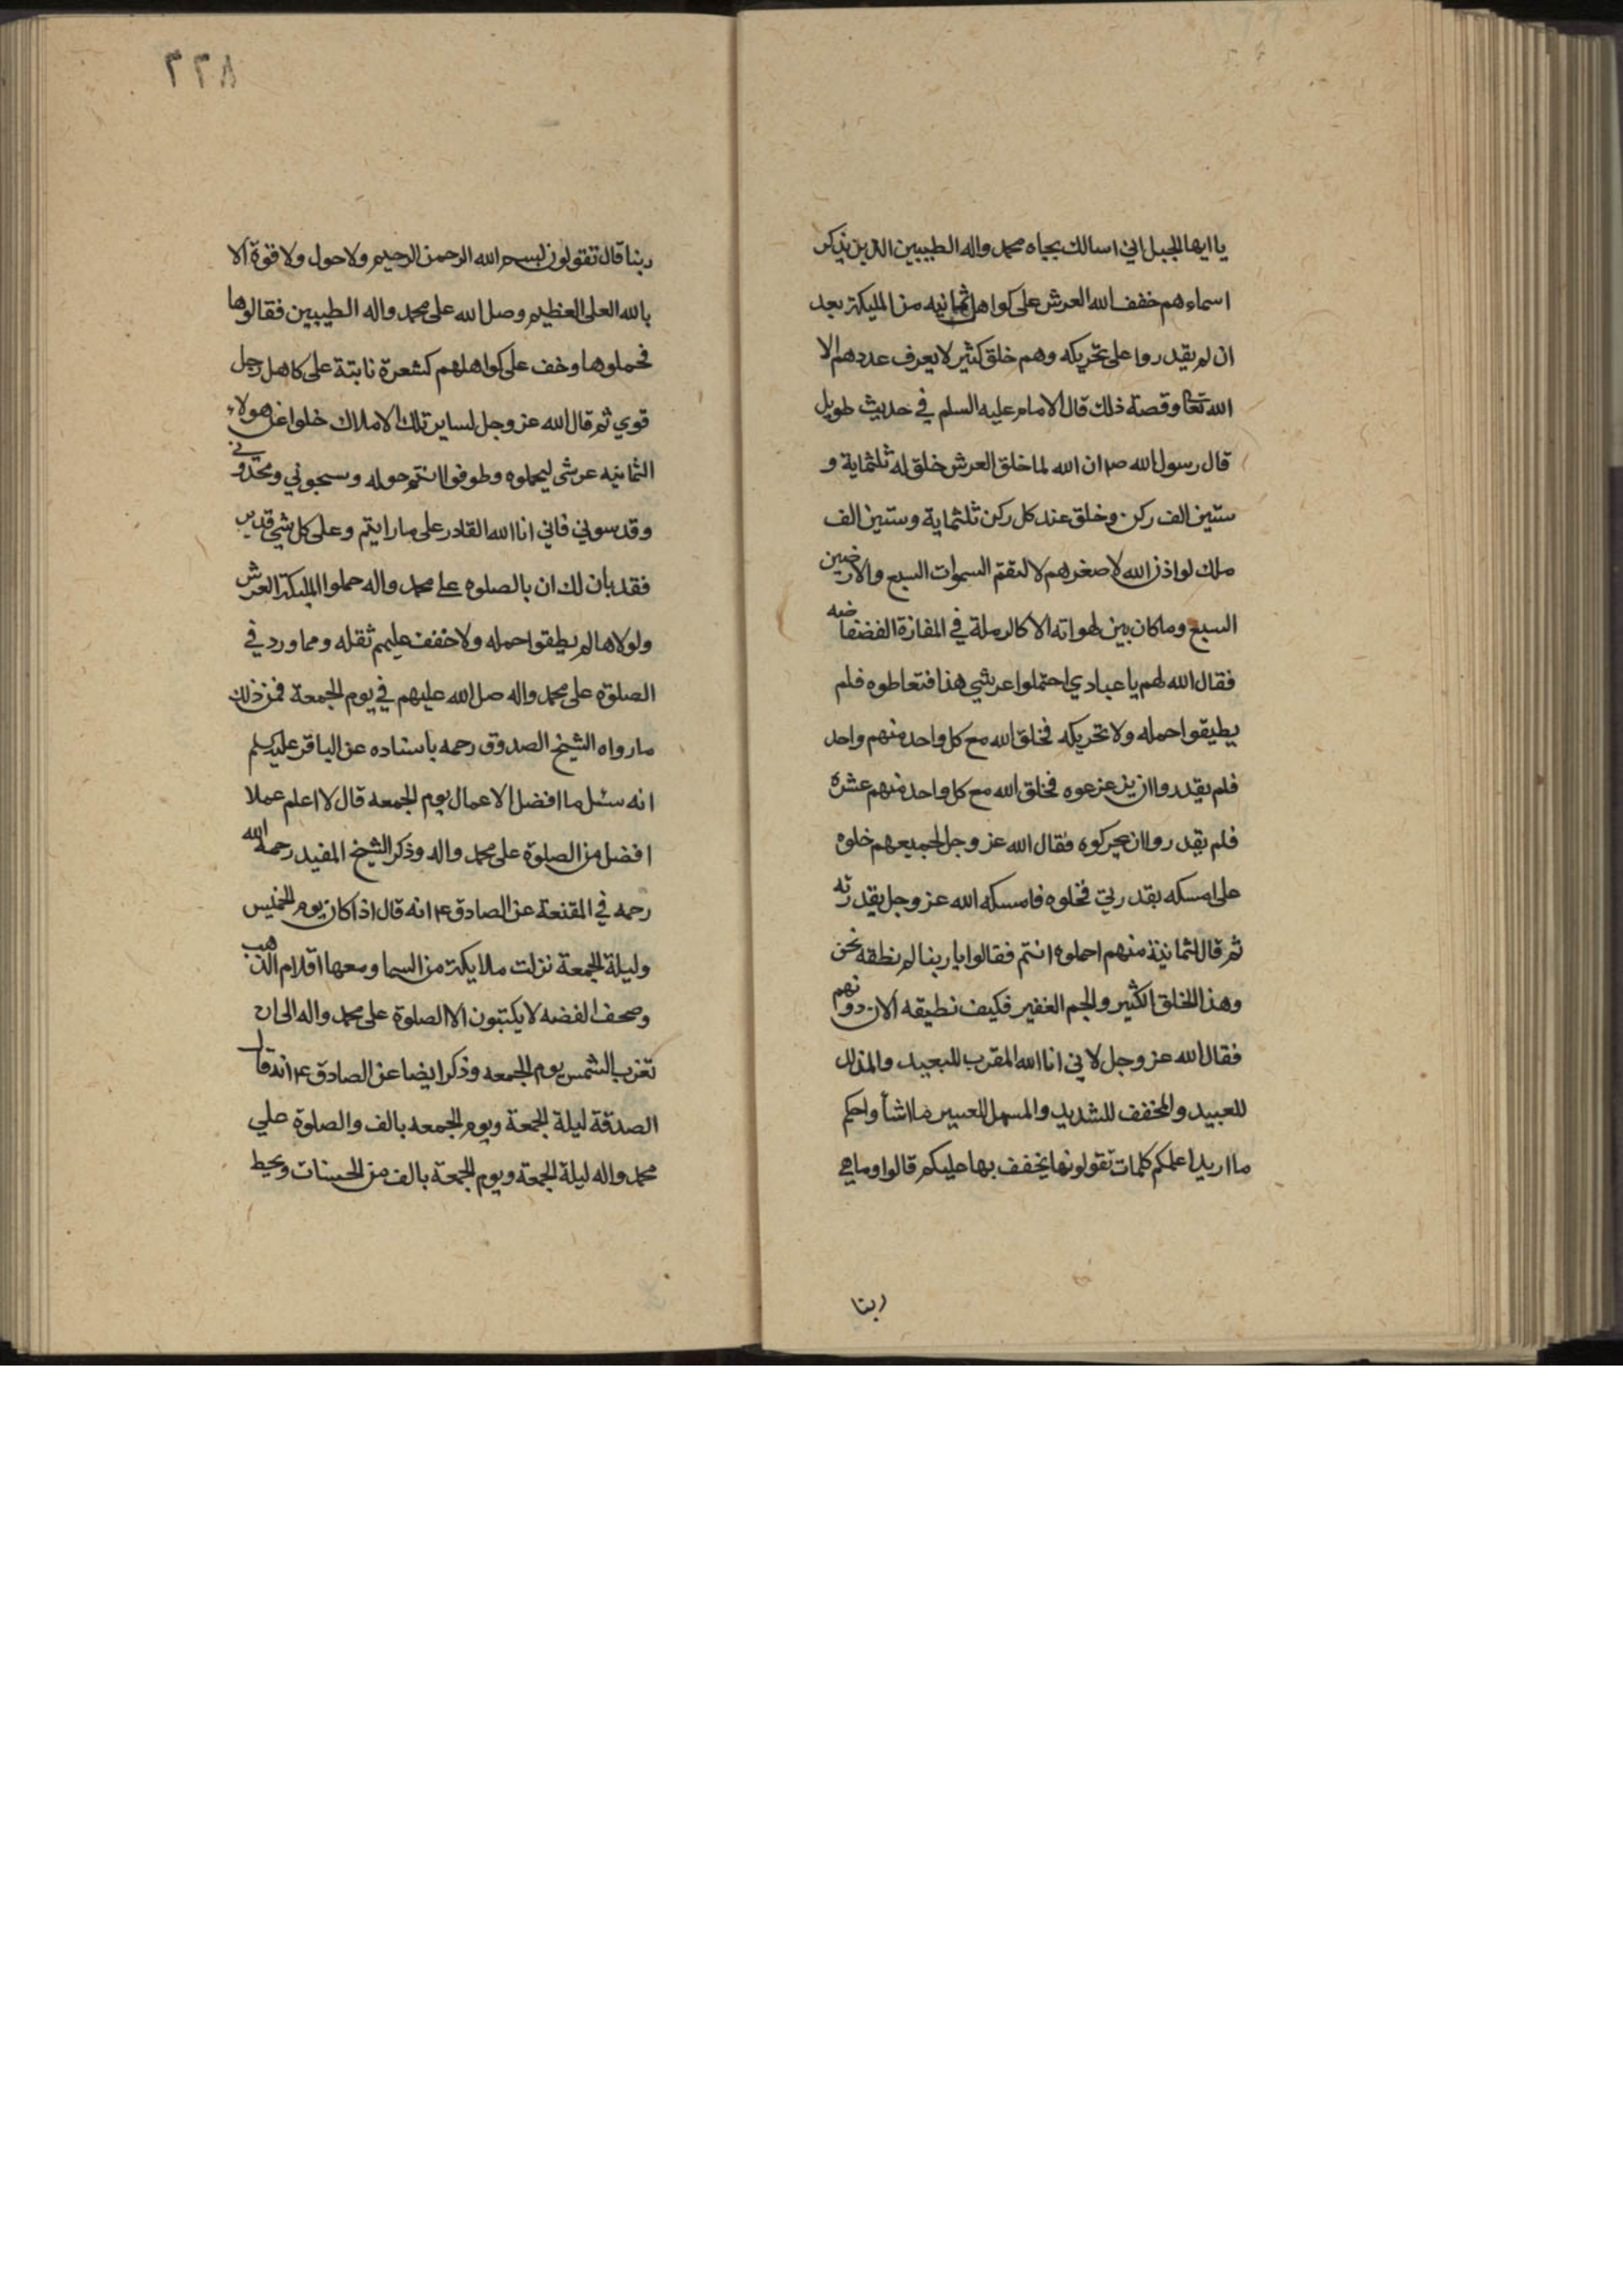 يا ايها الجبل اني اسالك بجاه محمد واله الطيبين الذين بذكر
اسماءهم خفف الله العرش على كواهل ثمانيه من المليكة بعد
ان لم يقدروا على تحريكه وهم خلق كثير لا يعرف عددهم الا
الله تعا وقصة ذلك قال الامام عليه السلم في حديث طويل
قال رسول الله ص ان الله لما خلق العرش خلق له ثلثماية و
ستين الف ركن وخلق عند كل ركن ثلثماية وستين الف
ملك لو اذن الله لاصغرهم لالتقم السموات السبع والارضين
السبع وما كان بين لهواته الا كالرملة في المفازة الفضفاضه
فقال الله لهم يا عبادي احتملوا عرشي هذا فتعاطوه فلم
يطيقوا حمله ولا تحريكه فخلق الله مع كل واحد منهم واحد
فلم يقدروا ان يزعزعوه فخلق الله مع كل واحد منهم عشرة
فلم يقدروا ان يحركوه فقال الله عز وجل لجميعهم خلوه
على امسكه بقدرتي فخلوه فامسكه الله عز وجل بقدرته
ثم قال لثمانية منهم احملوه انتم فقالوا يا ربنا لم نطقه نحن
وهذا الخلق الكثير والجم الغفير فكيف نطيقه الان دونهم
فقال الله عز وجل لاني انا الله المقرب للبعيد والمذلل
للعبيد والمخفف للشديد والمسهل للعسير ما اشأ واحكم
ما اريد اعلمكم كلمات تقولونها يخفف بها عليكم قالوا وما هي
ربنا
٢٢٨
ربنا قال تقولون بسم الله الرحمن الرحيم ولا حول ولا قوة الا
بالله العلى العظيم وصل الله على محمد واله الطيبين فقالوها
فحملوها وخف على كواهلهم كشعرة نابتة على كاهل رجل
قوي ثم قال الله عز وجل لساير تلك الاملاك خلوا عن هولاء
الثمانيه عرشى ليحملوه وطوفوا انتم حوله وسبحوني ومجدوني
وقدسوني فاني انا الله القادر على ما رايتم وعلى كل شي قدير
فقد بان لك ان بالصلوه على محمد واله حملوا المليكة العرش
ولولاها لم يطقوا حمله ولا خفف عليهم ثقله ومما ورد في
الصلوة على محمد واله صل الله عليهم في يوم الجمعة فمن ذلك
ما رواه الشيخ الصدوق رحمه باسناده عن الباقر عليه سلم
انه سئل ما افضل الاعمال يوم الجمعه قال لا اعلم عملا
افضل من الصلوة على محمد واله وذكر الشيخ المفيد رحمه الله
رحمه في المقنعة عن الصادق ع انه قال اذا كان يوم الخميس
وليلة الجمعة نزلت ملايكة من السما ومعها اقلام الذهب
وصحف الفضه لا يكتبون الا الصلوة على محمد واله الى ان
تغرب الشمس يوم الجمعه وذكر ايضا عن الصادق ع انه قال
الصدقة ليلة الجمعة ويوم الجمعه بالف والصلوة علي
محمد واله ليلة الجمعة ويوم الجمعة بالف من الحسنات ويحط